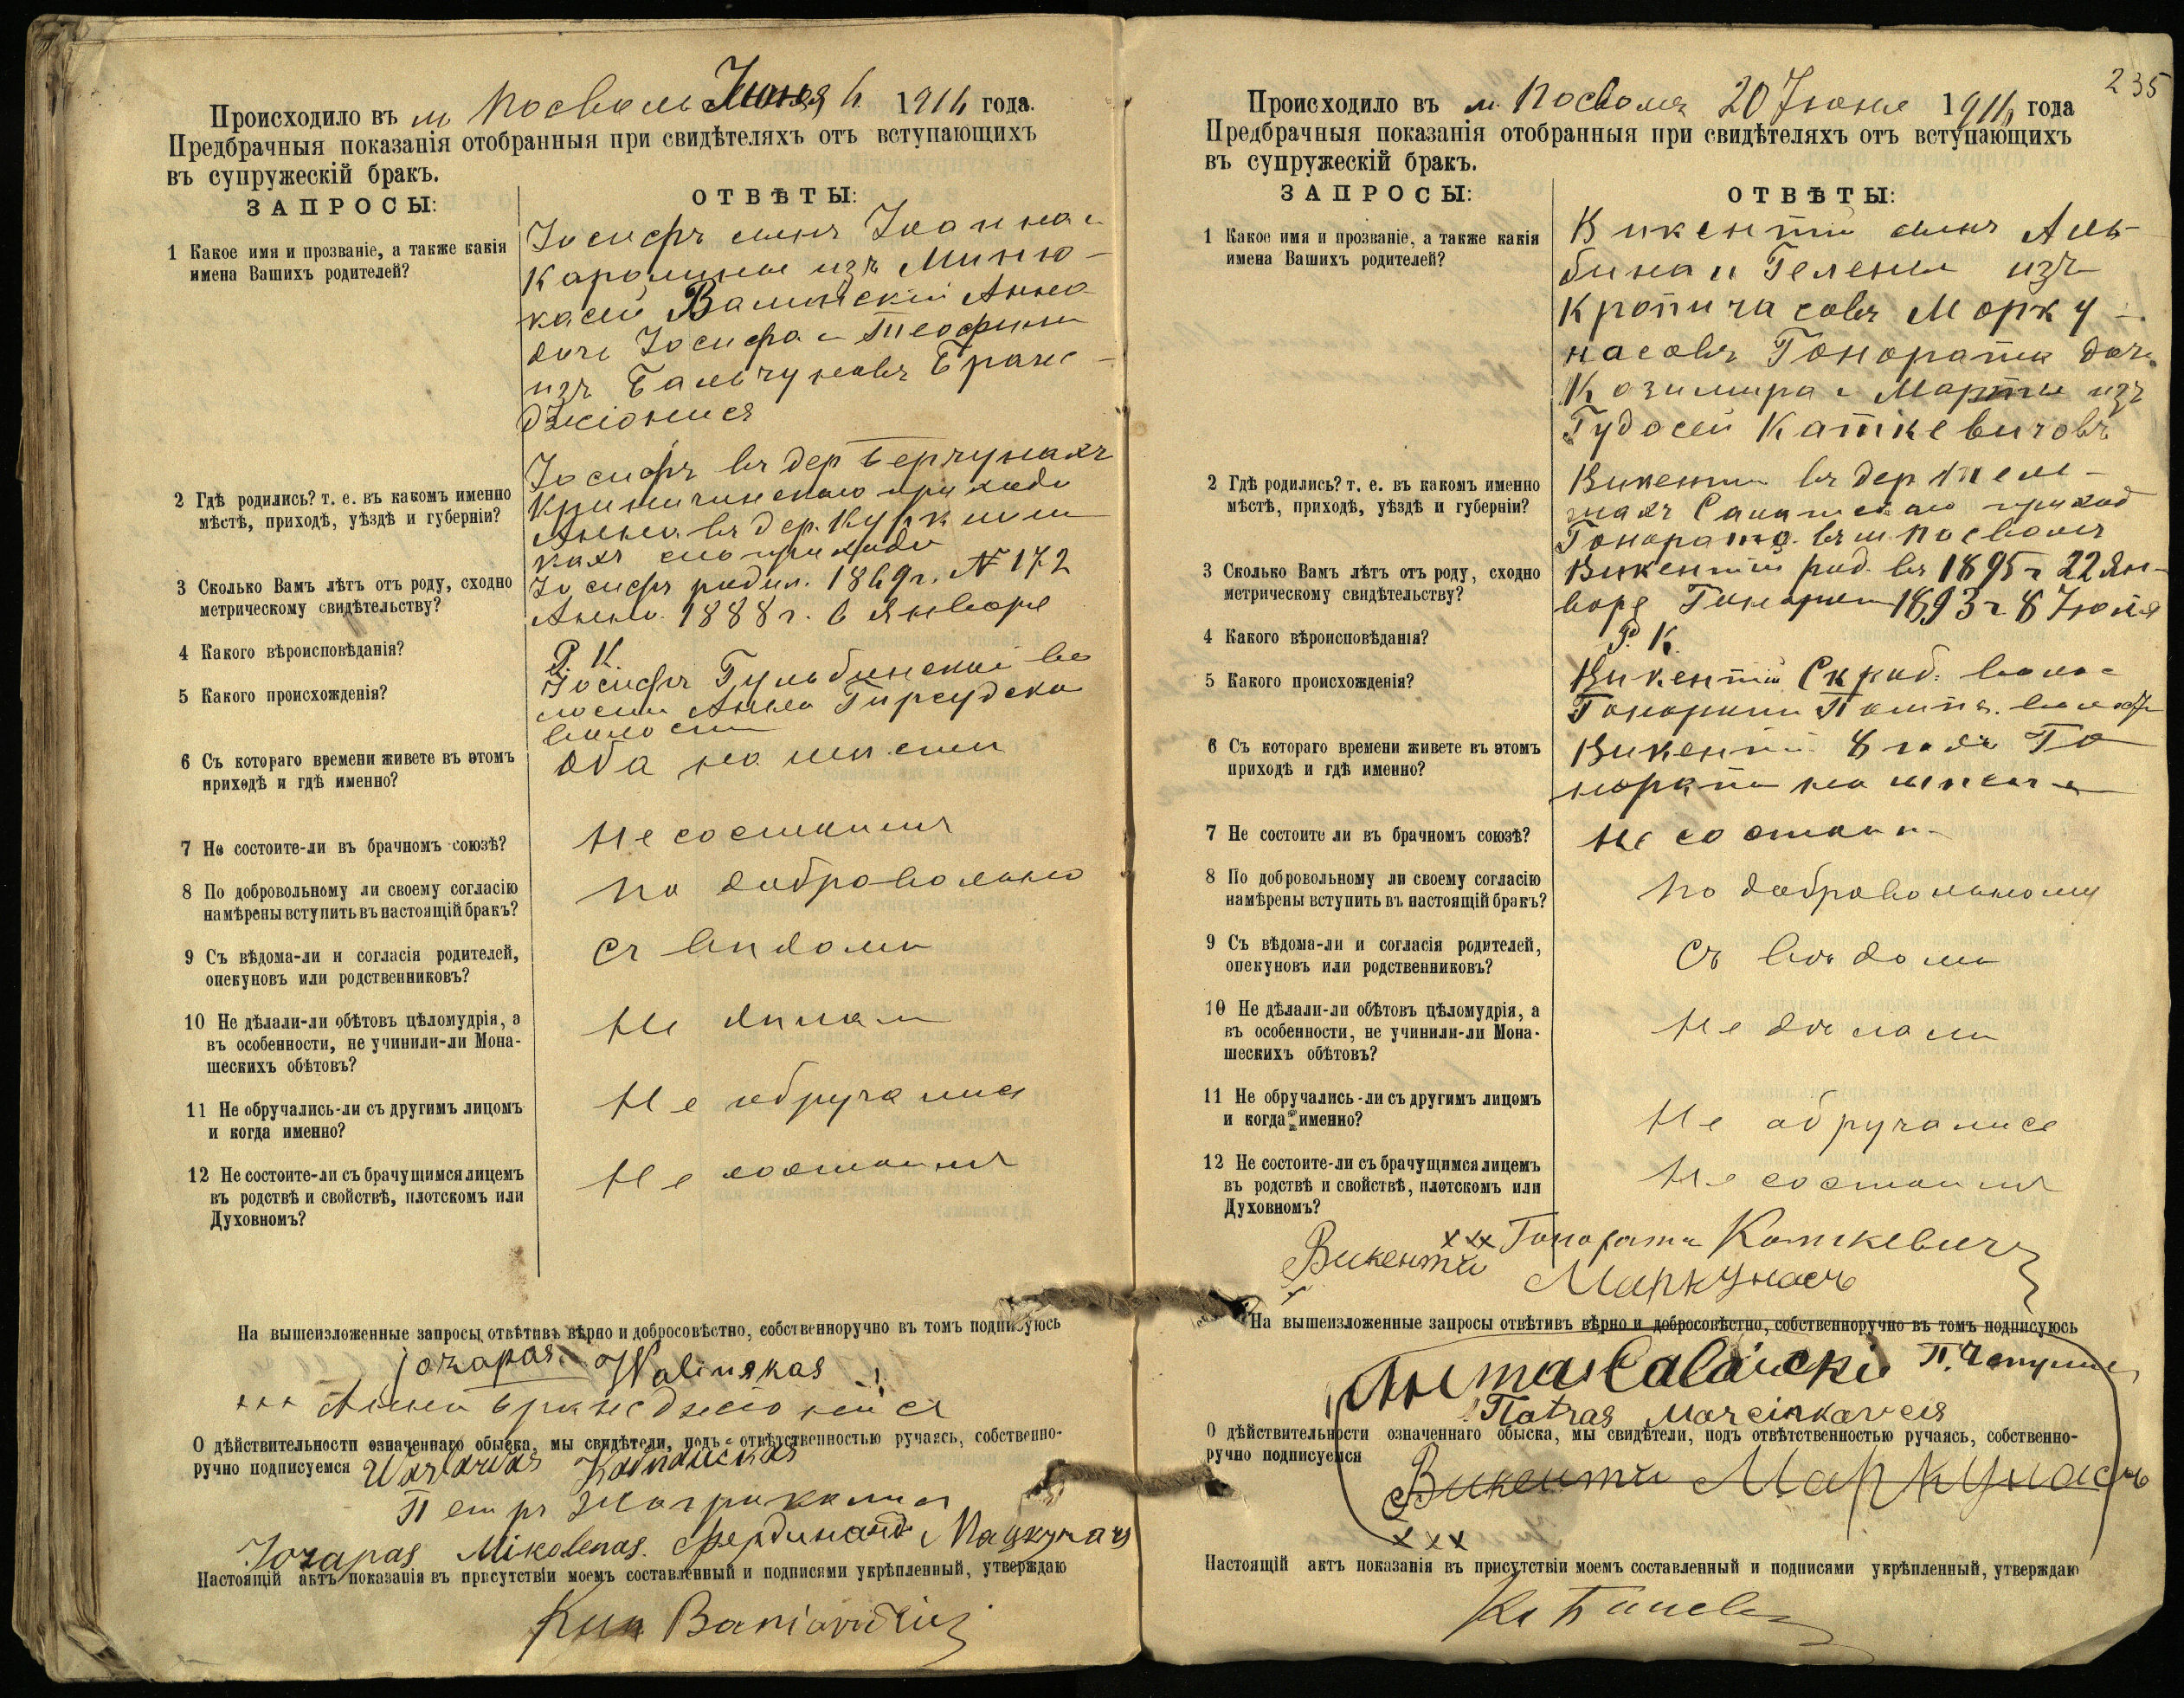 Происходило въ м Посволь Июня 6 1916 года.
Предбрачныя показанія отобранныя при свидѣтеляхъ отъ вступающихъ
въ супружескій бракъ.
ЗАПРОСЫ:
ОТВѢТЫ:
1 Какое имя и прозваніе, а также какія
имена Вашихъ родителей?
Іосифъ сынъ Іоанна и
Каролины изъ Миню-
касей Валинскій Анна
дочь Іосифа и Теофили
изъ Бальчуновъ Бранс-
джіонися
2 Гдѣ родились? т. е. въ какомъ именно
мѣстѣ, приходѣ, уѣздѣ и губерніи?
Іосифъ въ дер Берчунахъ
прихода
Анна въ дер.
прихода
3 Сколько Вамъ лѣтъ отъ роду, сходно
метрическому свидѣтельству?
Іосифъ родил. 1869г. № 172
Анна 1888г. 6 Января
4 Какого вѣроисповѣданія?
Р. К.
5 Какого происхожденія?
Іосифъ Гульбинской во
лости Анна Гирсудско
волости
6 Съ котораго времени живете въ этомъ
приходѣ и гдѣ именно?
Оба на мѣсти
7 Не состоите-ли въ брачномъ союзѣ?
Не состоимъ
8 По добровольному ли своему согласію
намѣрены вступить въ настоящій бракъ?
По добровольно
9 Съ вѣдома-ли и согласія родителей,
опекуновъ или родственниковъ?
Съ вѣдома
10 Не дѣлали-ли обѣтовъ цѣломудрія, а
въ особенности, не учинили-ли Мона-
шескихъ обѣтовъ?
Не дѣлали
11 Не обручались-ли съ другимъ лицомъ
и когда именно?
Не обручались
12 Не состоите-ли съ брачущимся лицемъ
въ родствѣ и свойствѣ, плотскомъ или
Духовномъ?
Не состоимъ
На вышеизложенные запросы отвѣтивъ вѣрно и добросовѣстно, собственноручно въ томъ подписуюсь
Jozapas Walinskas
+++ Анна Брансджіонися
О дѣйствительности означеннаго обыска, мы свидѣтели, подъ отвѣтственностью ручаясь, собственно-
ручно подписуемся
Петръ
Jozapas Mikolenas. Фердинандъ
Настоящій актъ показанія въ присутствіи моемъ составленный и подписями укрѣпленный, утверждаю
235
Происходило въ м. Посволь 20 Іюня 1916 года
Предбрачныя показанія отобранныя при свидѣтеляхъ отъ вступающихъ
въ супружескій бракъ.
ЗАПРОСЫ:
ОТВѢТЫ:
1 Какое имя и прозваніе, а также какія
имена Вашихъ родителей?
Викентій сынъ Аль-
бина и Гелены изъ
Кропичасовъ Марку-
насовъ Гонората дочь
Казимира и Марты изъ
Гудосей Каткевичовъ
2 Гдѣ родились? т. е. въ какомъ именно
мѣстѣ, приходѣ, уѣздѣ и губерніи?
Викентій въ дер
приход
Гонората въ м Посволь
3 Сколько Вамъ лѣтъ отъ роду, сходно
метрическому свидѣтельству?
Викентій род. въ 1895г 22 Ян-
варя Гонорат 1893г 8 Іюля
4 Какого вѣроисповѣданія?
Р. К.
5 Какого происхожденія?
Викентій Скроб. волос
6 Съ котораго времени живете въ этомъ
приходѣ и гдѣ именно?
Викентій 8 годъ Го
нората на мѣсте
7 Не состоите ли въ брачномъ союзѣ?
Не состоим
8 По добровольному ли своему согласію
намѣрены вступить въ настоящій бракъ?
По добровольному
9 Съ вѣдома-ли и согласія родителей,
опекуновъ или родственниковъ?
Съ вѣдома
10 Не дѣлали-ли обѣтовъ цѣломудрія, а
въ особенности, не учинили-ли Мона-
шескихъ обѣтовъ?
Не дѣлали
11 Не обручались-ли съ другимъ лицомъ
и когда именно?
Не обручались
12 Не состоите-ли съ брачущимся лицемъ
въ родствѣ и свойствѣ, плотскомъ или
Духовномъ?
Не состоимъ
xxx Гонората Каткевичъ
Викентій Маркунасъ
На вышеизложенные запросы отвѣтивъ вѣрно и добросовѣстно, собственноручно въ томъ подписуюсь
Patras Marcinkavčis
О дѣйствительности означеннаго обыска, мы свидѣтели, подъ отвѣтственностью ручаясь, собственно-
ручно подписуемся
Викентій Маркунасъ
xxx
Настоящій актъ показанія въ присутствіи моемъ составленный и подписями укрѣпленный, утверждаю